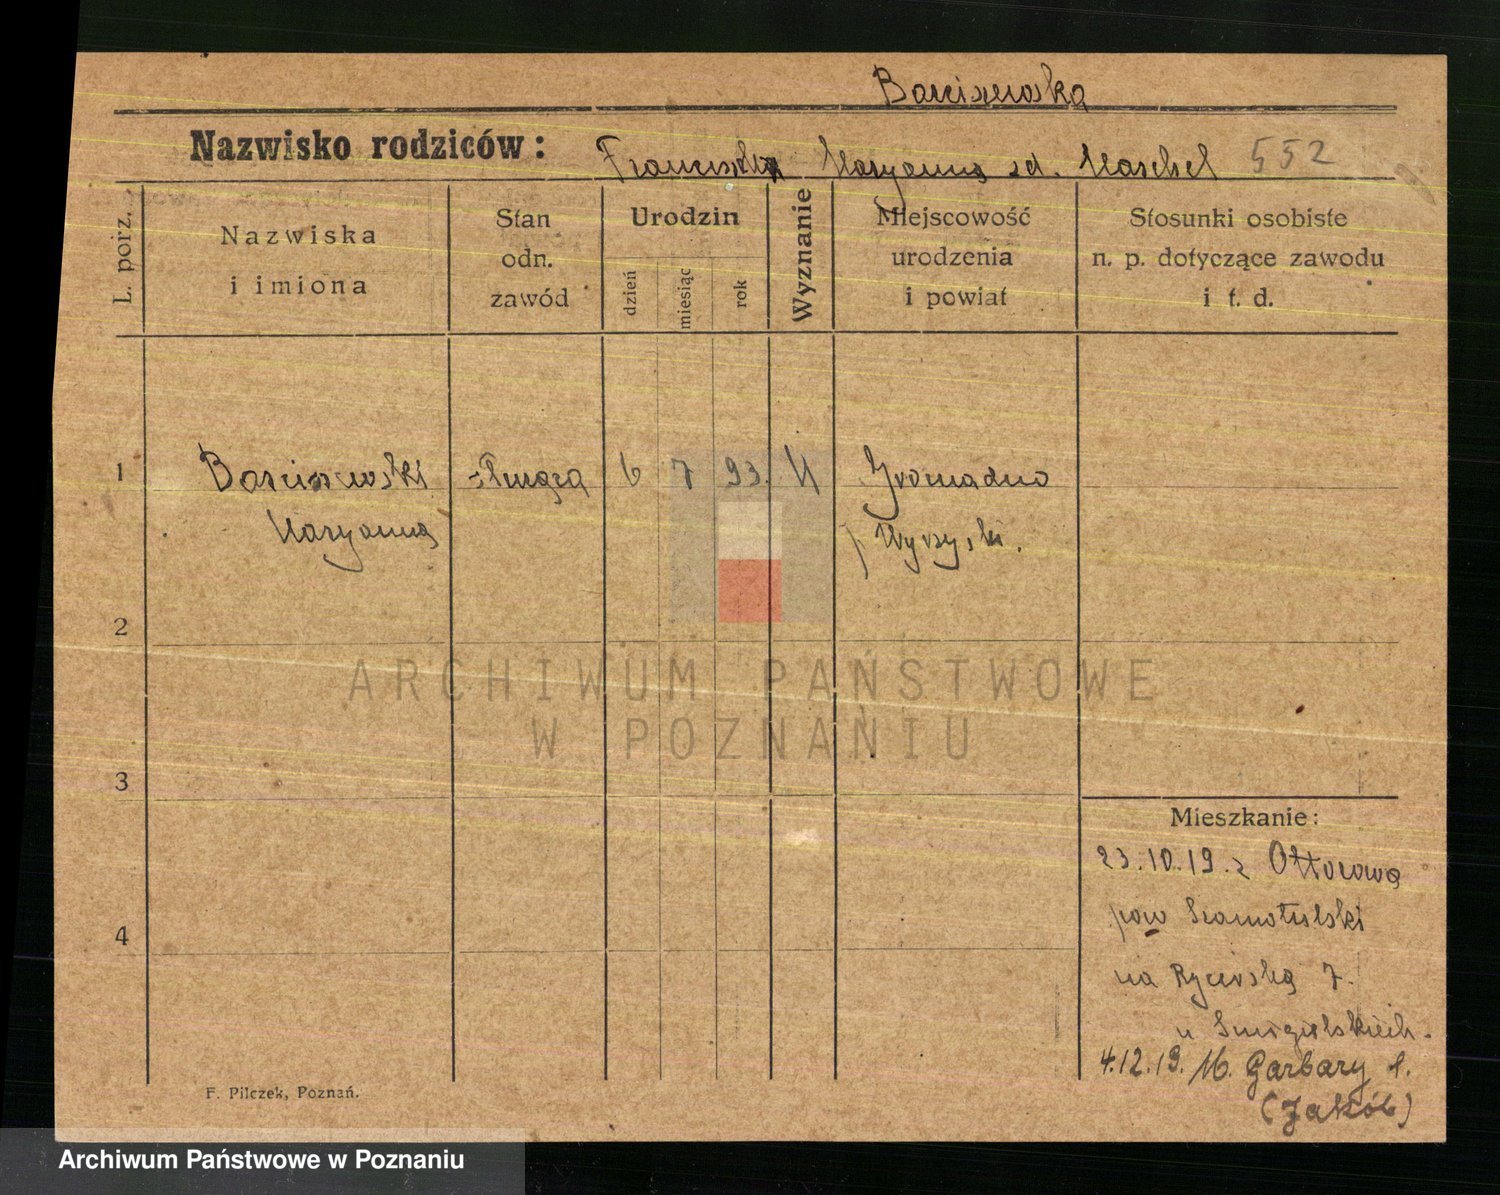 Barciszewska
Nazwisko rodziców: Franciszka Maryanna zd. Maschel 552
L. porz.
Nazwiska
i imiona
Stan
odn.
zawód
Urodzin
dzień
miesiąc
rok
Wyznanie
Miejscowość
urodzenia
i powiat
Stosunki osobiste
n. p. dotyczące zawodu
i t. d.
1 Barciszewski służąca 6 7 93. Gromadno
Maryanna p Wyrzyski.
2
ARCHIWUM PAŃSTWOWE
W POZNANIU
3
Mieszkanie:
23.10.19. z Ottorowa
pow Szamotulski
4
na Rycerską 7.
u Smigielskich.
4.12.19. M. Garbary 1.
(Jakób)
F. Pilczek, Poznań.
Archiwum Państwowe w Poznaniu